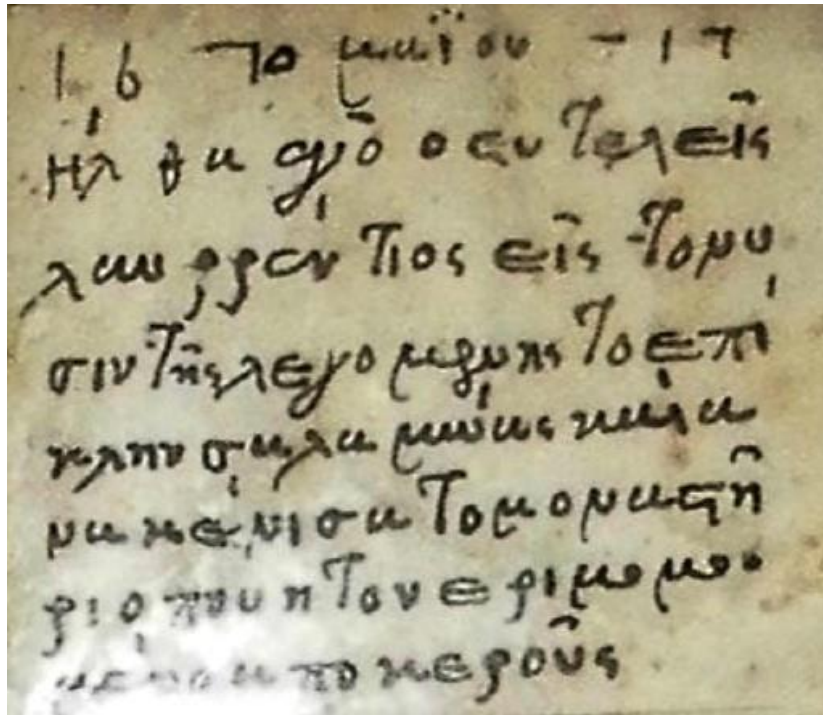 1,6 70 μαΐου - 17
ἦλθα ἐγὸ ο ευτελεῖς
λαυρρέντιος εῖς το νυ
σίν τῆς λεγομένης το επί
κλην σαλαμίνας και α
νακένισα το μοναστῆ
ριο που ητον εριμομο
απο κεροῦς